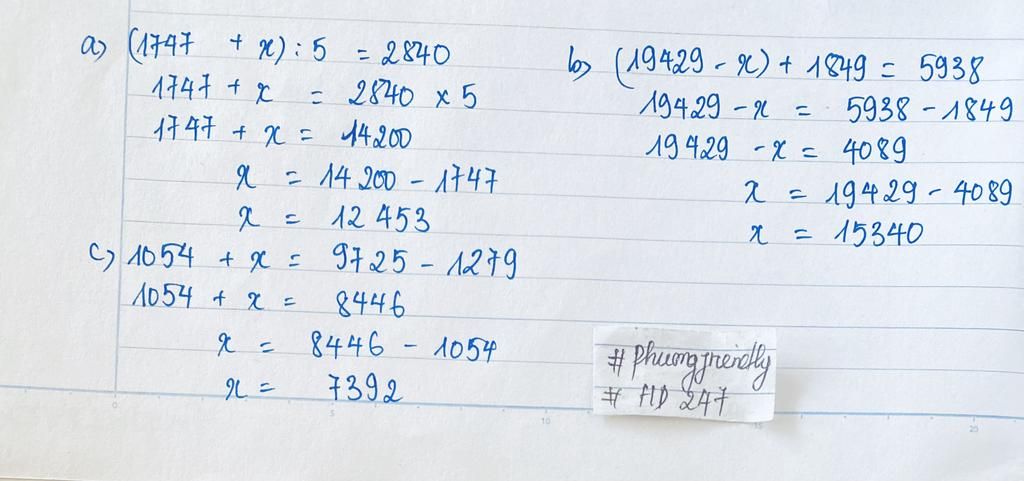 a) (1747 + x) : 5 = 2840
1747 + x = 2840 x 5
1747 + x = 14200
x = 14200 - 1747
x = 12453
b) (19429 - x) + 1849 = 5938
19429 - x = 5938 - 1849
19429 - x = 4089
x = 19429 - 4089
x = 15340
c) 1054 + x = 9725 - 1279
1054 + x = 8446
x = 8446 - 1054
x = 7392
# phuongfriendly
# FID 247
0 5 10 15 20